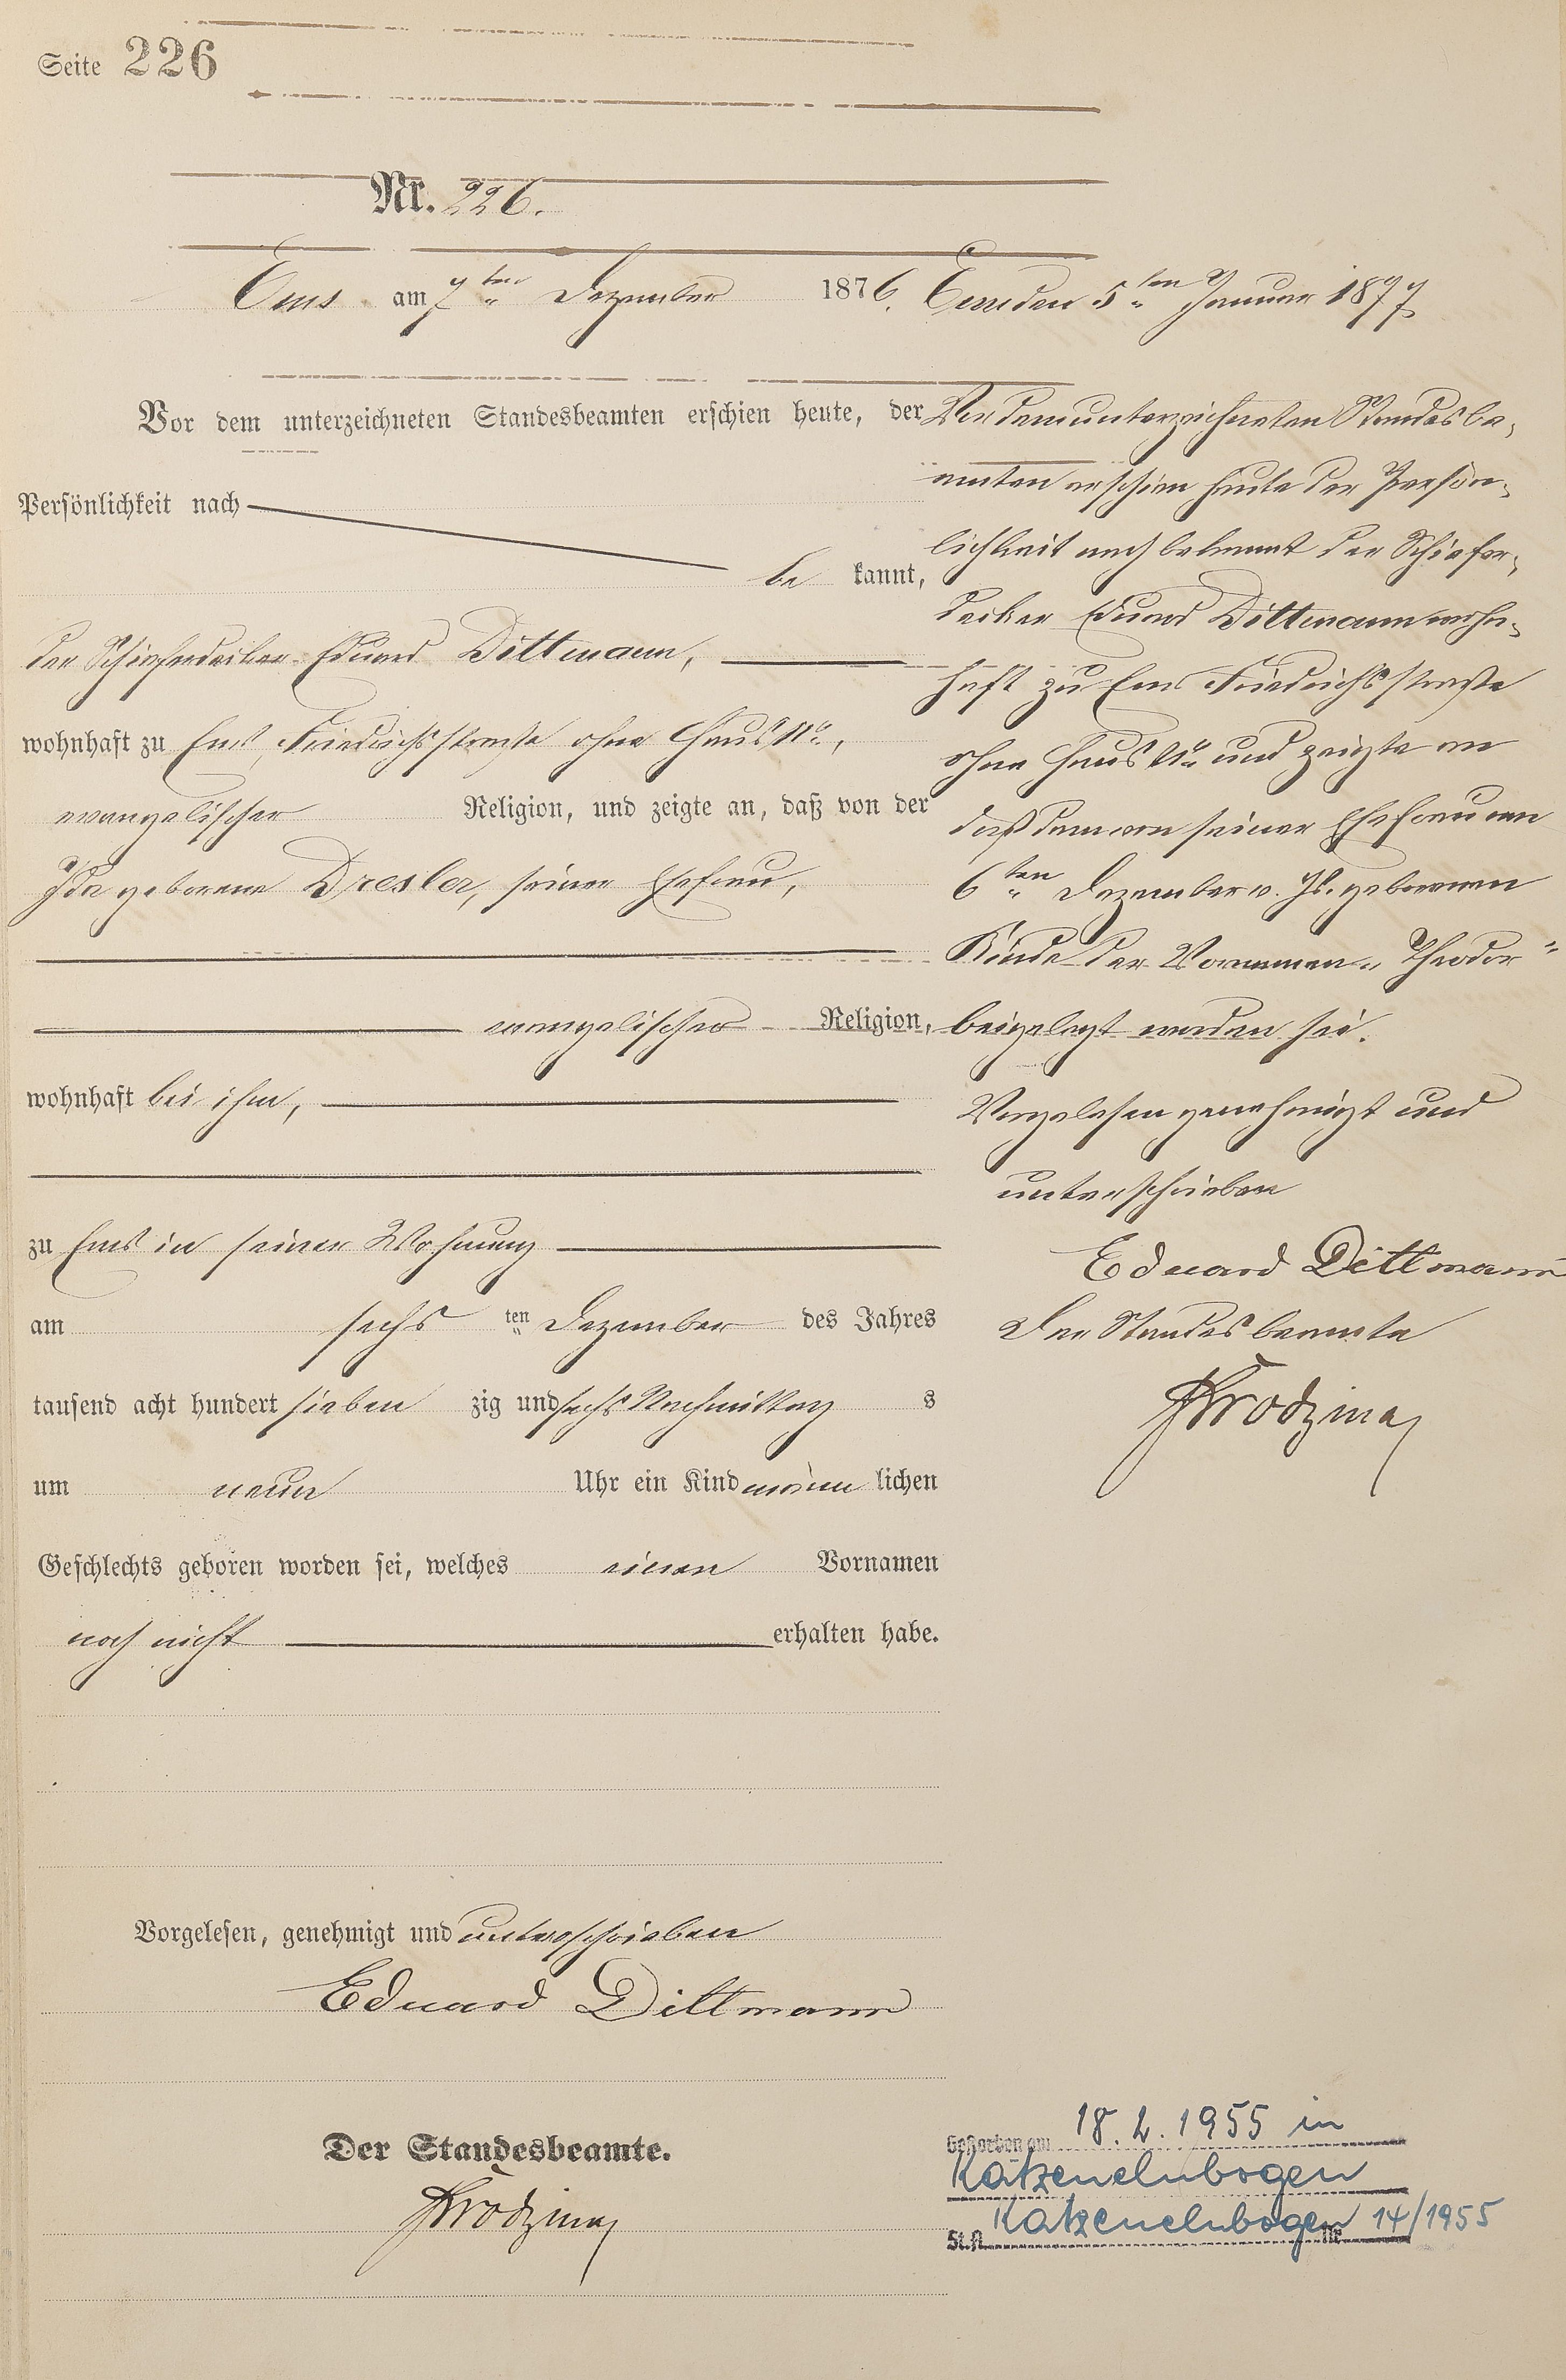 Seite 226
Nr. 226.
Ems am 7ten Dezember 1876.
Vor dem unterzeichneten Standesbeamten erschien heute, der
Persönlichkeit nach
be kannt,
der Schieferdecker Eduard Dittmann,
wohnhaft zu Ems, Friedrichsstraße ohne Haus No,
evangelischer Religion, und zeigte an, daß von der
Ida geborene Dresler, seiner Ehefrau,
evangelischer Religion,
wohnhaft bei ihm,
zu Ems in seiner Wohnung
am sechs ten Dezember des Jahres
tausend acht hundert sieben zig und sechs Nachmittag s
um neun Uhr ein Kind männ lichen
Geschlechts geboren worden sei, welches einen Vornamen
noch nicht erhalten habe.
Vorgelesen, genehmigt und unterschrieben
Eduard Dittmann
Der Standesbeamte.
Ems den 5ten Januar 1877
Vor dem unterzeichneten Standesbe-
amten erschien heute der Persön-
lichkeit nach bekannt der Schiefer-
decker Eduard Dittmann wohn-
haft zu Ems Friedrichsstraße
ohne Haus No und zeigte an
daß dem von seiner Ehefrau am
6ten Dezember v. Js. geborenen
Kinde der Vornamen „Theodor"
beigelegt worden sei.
Vorgelesen genehmigt und
unterschrieben
Eduard Dittmann
Der Standesbeamte
Gestorben am 18.2.1955 in
Katzenelnbogen
St.A. Katzenelnbogen Nr. 14/1955